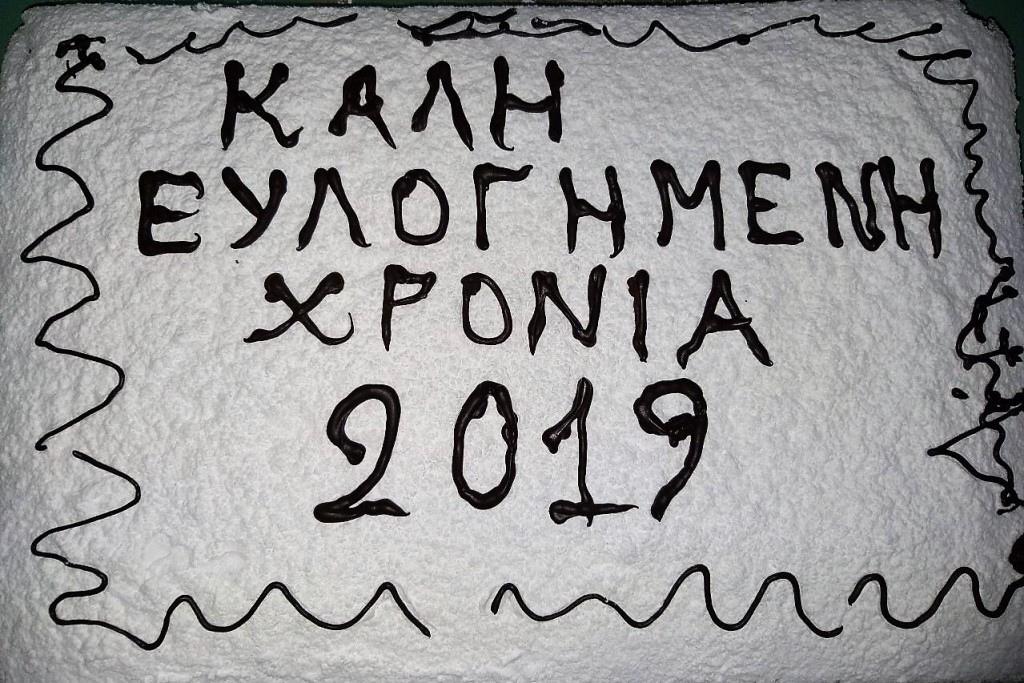 ΚΑΛΗ
ΕΥΛΟΓΗΜΕΝΗ
ΧΡΟΝΙΑ
2019